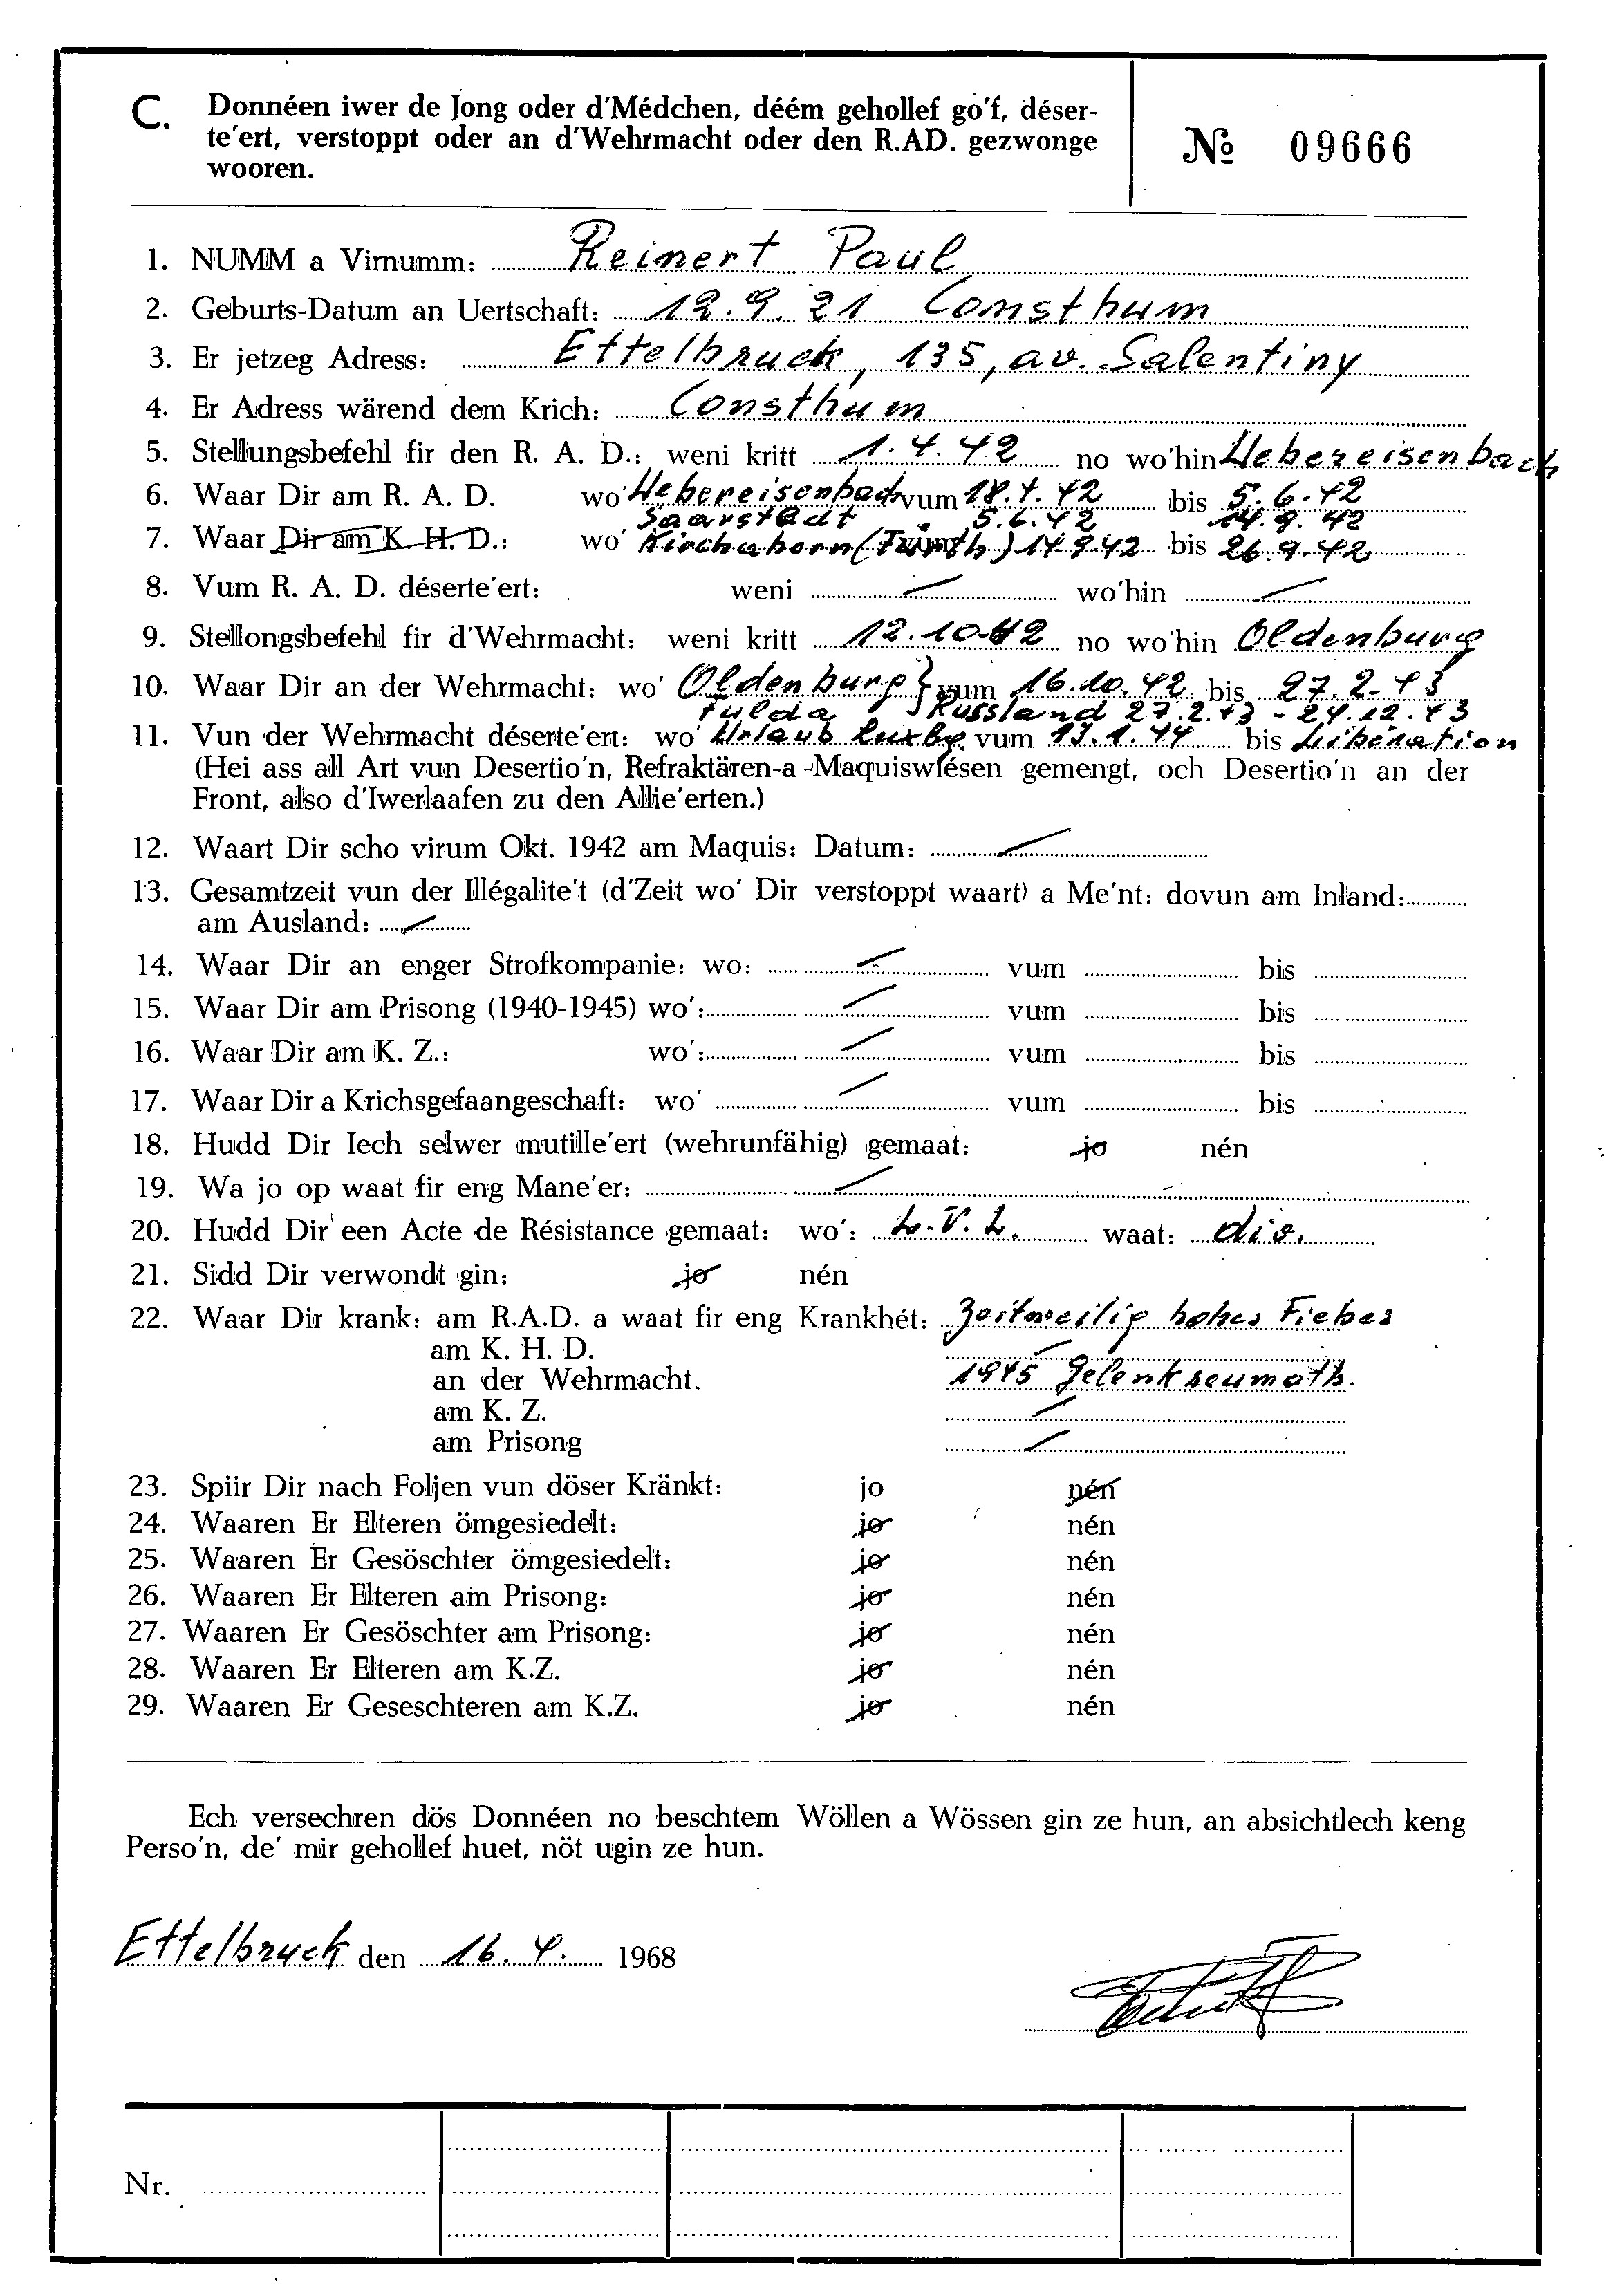 C. Donnéen iwer de Jong oder d'Médchen, déém gehollef go'f, déser-
te'ert, verstoppt oder an d'Wehrmacht oder den R.AD. gezwonge
wooren.
№ 09666
1. NUMM a Virnumm: Reinert Paul
2. Geburts-Datum an Uertschaft: 12.9.21 Consthum
3. Er jetzeg Adress: Ettelbruck, 135, av. Salentiny
4. Er Adress wärend dem Krich: Consthum
5. Stellungsbefehl fir den R. A. D.: weni kritt 1.4.42 no wo'hin Uebereisenbach
6. Waar Dir am R. A. D. wo' Uebereisenbach vum 18.4.42 bis 5.6.42
Saarstadt 5.6.42 14.9.42
7. Waar Dir am K. H. D.: wo' vum 14.9.42 bis 26.9.42
8. Vum R. A. D. déserte'ert: weni — wo'hin —
9. Stellongsbefehl fir d'Wehrmacht: weni kritt 12.10.42 no wo'hin Oldenburg
10. Waar Dir an der Wehrmacht: wo' Oldenburg } vum 16.10.42 bis 27.2.43
Fulda Russland 27.2.43 - 24.12.43
11. Vun der Wehrmacht déserte'ert: wo' Urlaub Luxbg. vum 13.1.44 bis Libération
(Hei ass all Art vun Desertio'n, Refraktären-a-Maquiswiésen gemengt, och Desertio'n an der
Front, also d'Iwerlaafen zu den Allie'erten.)
12. Waart Dir scho virum Okt. 1942 am Maquis: Datum: —
13. Gesamtzeit vun der Illégalite't (d'Zeit wo' Dir verstoppt waart) a Me'nt: dovun am Inland:
am Ausland: —
14. Waar Dir an enger Strofkompanie: wo: — vum bis
15. Waar Dir am Prisong (1940-1945) wo': — vum bis
16. Waar Dir am K. Z.: wo': — vum bis
17. Waar Dir a Krichsgefaangeschaft: wo' — vum bis
18. Hudd Dir Iech selwer mutille'ert (wehrunfähig) gemaat: jo nén
19. Wa jo op waat fir eng Mane'er: —
20. Hudd Dir een Acte de Résistance gemaat: wo': L.V.L. waat: div.
21. Sidd Dir verwondt gin: jo nén
22. Waar Dir krank: am R.A.D. a waat fir eng Krankhét: Zeitweilig hohes Fieber
am K. H. D. —
an der Wehrmacht. 1945 Gelenkreumath.
am K. Z. —
am Prisong —
23. Spiir Dir nach Foljen vun döser Kränkt: jo nén
24. Waaren Er Elteren ömgesiedelt: jo nén
25. Waaren Er Gesöschter ömgesiedelt: jo nén
26. Waaren Er Elteren am Prisong: jo nén
27. Waaren Er Gesöschter am Prisong: jo nén
28. Waaren Er Elteren am K.Z. jo nén
29. Waaren Er Geseschteren am K.Z. jo nén
Ech versechren dös Donnéen no beschtem Wöllen a Wössen gin ze hun, an absichtlech keng
Perso'n, de' mir gehollef huet, nöt ugin ze hun.
Ettelbruck den 16.4. 1968
Nr.